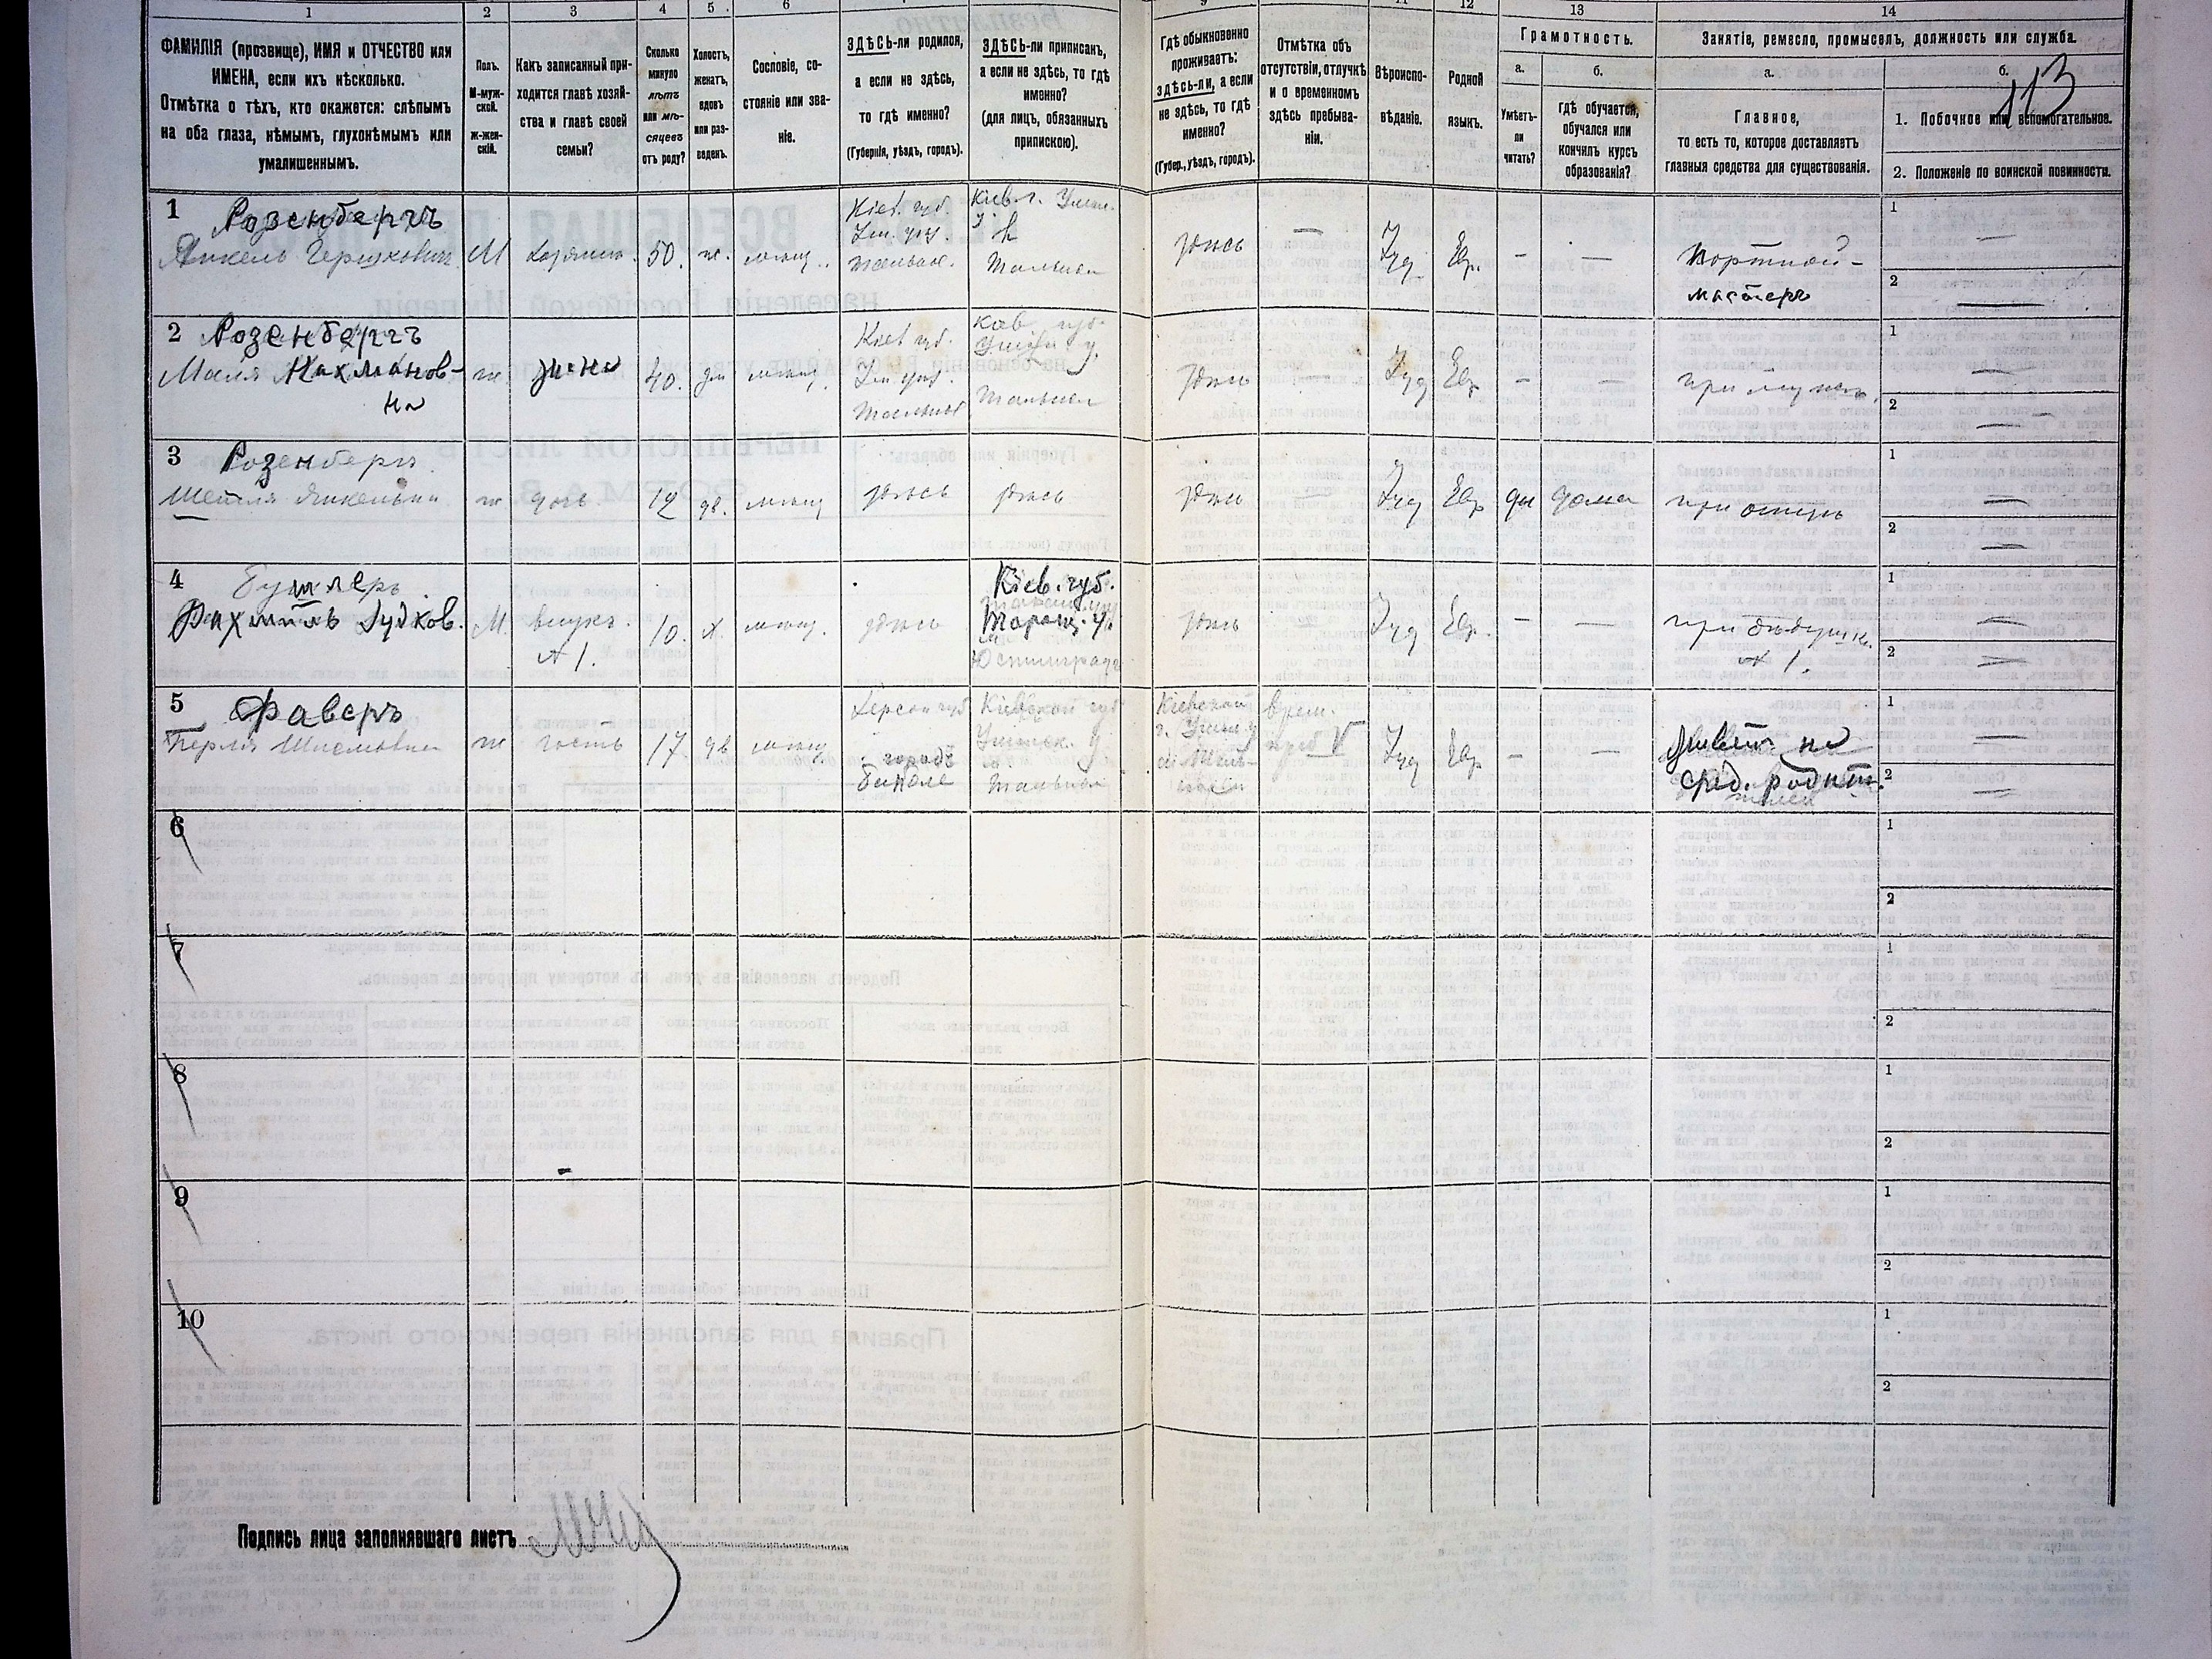 1 2 3 4 5 6 9 12 13 14
ФАМИЛІЯ (прозвище), ИМЯ и ОТЧЕСТВО или
ИМЕНА, если ихъ нѣсколько.
Отмѣтка о тѣхъ, кто окажется: слѣпымъ
на оба глаза, нѣмымъ, глухонѣмымъ или
умалишеннымъ.
Полъ.
М-муж-
ской.
Ж-жен-
скій.
Какъ записанный при-
ходится главѣ хозяй-
ства и главѣ своей
семьи?
Сколько
минуло
лѣтъ
или мѣ-
сяцевъ
отъ роду?
Холостъ,
женатъ,
вдовъ
или раз-
веденъ.
Сословіе, со-
стояніе или зва-
ніе.
ЗДѢСЬ-ли родился,
а если не здѣсь,
то гдѣ именно?
(Губернія, уѣздъ, городъ).
ЗДѢСЬ-ли приписанъ,
а если не здѣсь, то гдѣ
именно?
(для лицъ, обязанныхъ
припискою).
Гдѣ обыкновенно
проживаетъ:
здѣсь-ли, а если
не здѣсь, то гдѣ
именно?
(Губер., уѣздъ, городъ).
Отмѣтка объ
отсутствіи, отлучкѣ
и о временномъ
здѣсь пребыва-
ніи.
Вѣроиспо-
вѣданіе.
Родной
языкъ.
Грамотность.
а.
Умѣетъ-
ли
читать?
б.
гдѣ обучается,
обучался или
кончилъ курсъ
образованія?
Занятіе, ремесло, промыселъ, должность или служба.
а.
Главное,
то есть то, которое доставляетъ
главныя средства для существованія.
б.
113
1. Побочное или вспомогательное.
2. Положеніе по воинской повинности.
1 Розенбергъ
Янкель Гершковичъ М хозяинъ 50. ж. мѣщ.
Кіев. губ.
Ум. уѣз.
Тальное.
Кіев. г. Уман.
У.
Тальное
здѣсь — Іуд Евр. - —
Портной -
мастеръ
1 —
2 —
2 Розенбергъ
Маля Нахманов-
на
ж. жена 40. зм мѣщ.
Кіев губ.
Ум. уѣз.
Тальное
Кіев. губ.
Уман. у.
Тальное
здѣсь — Іуд Евр - —
при мужѣ
1 —
2 —
3 Розенбергъ
Шейля Янкельна ж дочь 12 дѣ. мѣщ здѣсь здѣсь здѣсь — Іуд Евр да дома при отцѣ
1 —
2 —
4
Рахмиль Іудков. М. внукъ 10. х. мѣщ. здѣсь
№ 1.
Кіев. губ.
Таращ. у.
м
Юстинградъ
здѣсь — Іуд Евр. - —
при дѣдушкѣ
№ 1.
1 —
2 —
5 Фаверъ
Перля Шмемовна ж гость 17 дѣ мѣщ.
Херсон губ
городъ
Кіевской губ
Уманск. у.
м.
Тальное
Кіевской
г. Уман. у
м. Таль-
ное
врем.
преб V
Іуд Евр - —
Живетъ на
сред. родит.
1 —
2 —
6
1
2
7
1
2
8
1
2
9
1
2
10
1
2
Подпись лица заполнявшаго листъ